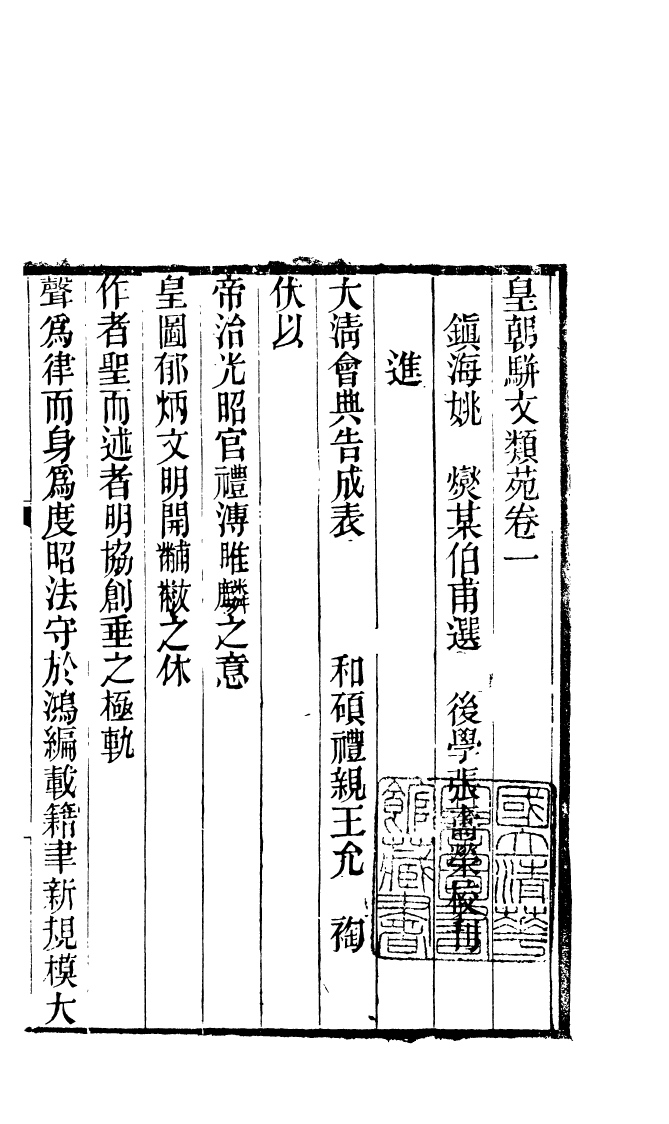 皇朝駢文類苑卷一
鎮海姚　燮某伯甫選　後學張壽榮校刊
進
大清會典告成表　和碩禮親王允　祹
伏以
帝治光昭官禮溥雎麟之意
皇圖郁炳文明開黼黻之休
作者聖而述者明協創垂之極軌
聲爲律而身爲度昭法守於鴻編載籍聿新規模大
國立清華
大學圖書
館藏書